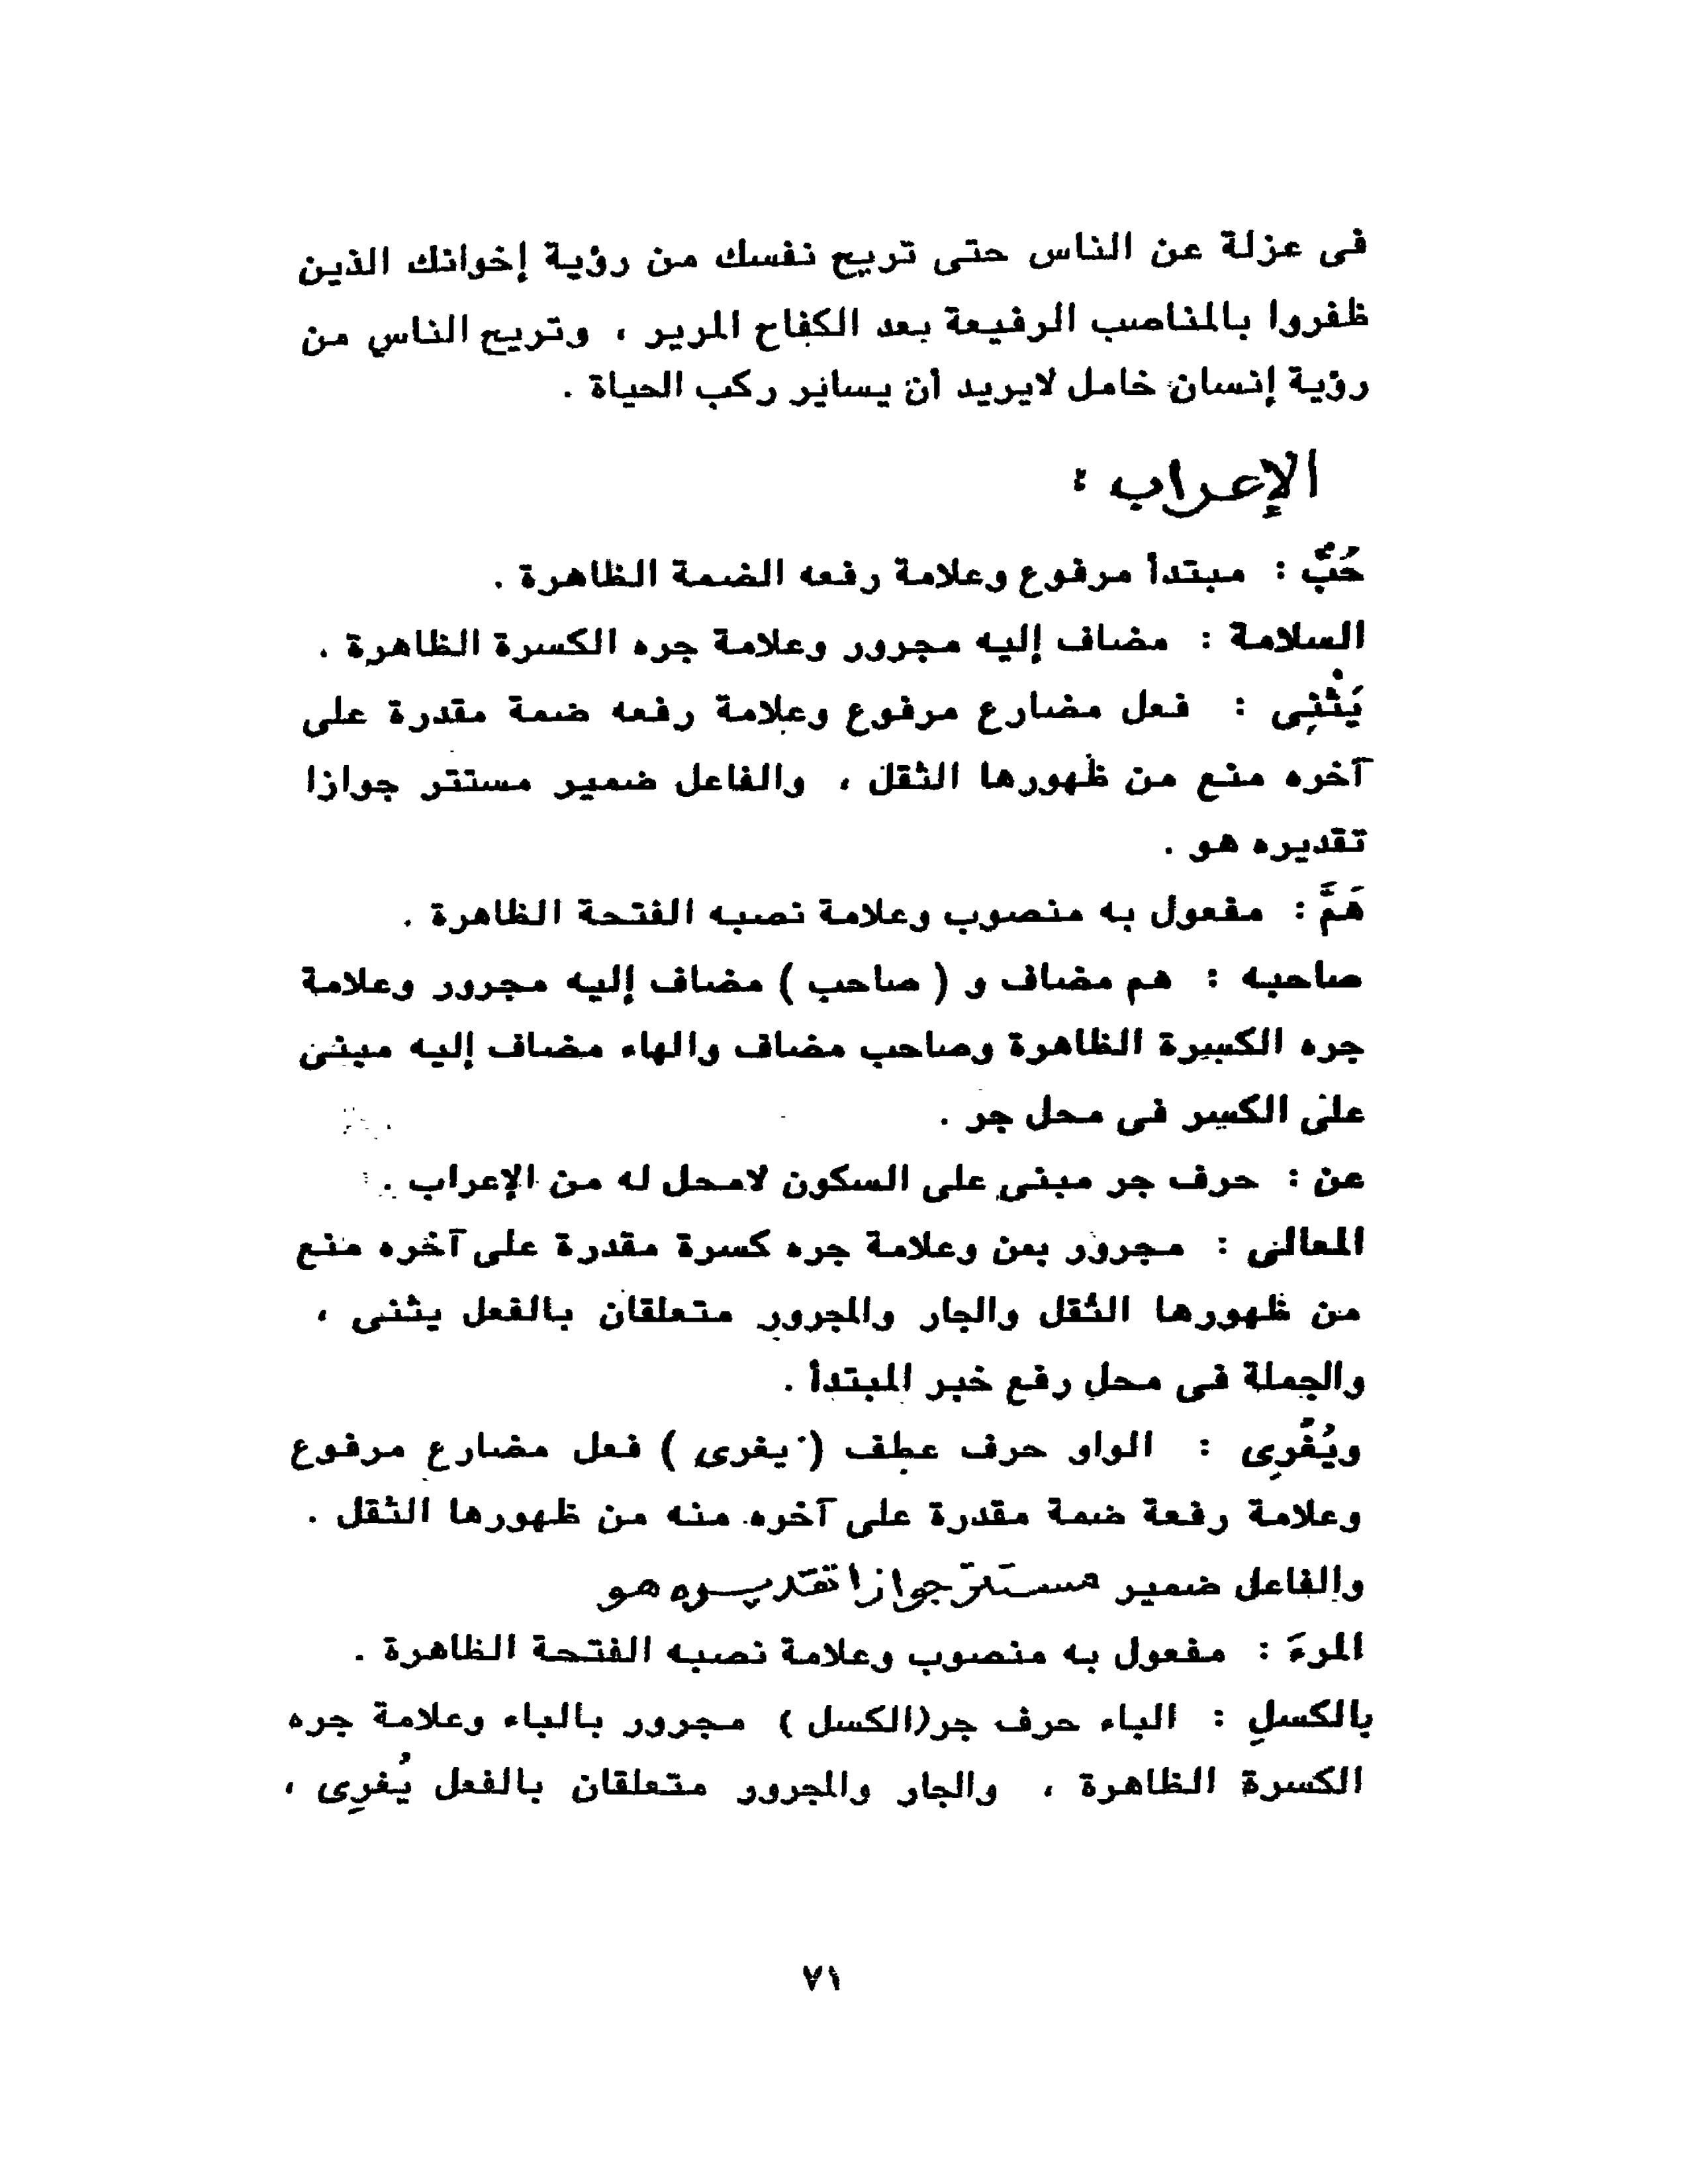 فى عزلة عن الناس حتى تريح نفسك من رؤية إخوانك الذين
ظفروا بالمناصب الرفيعة بعد الكفاح المرير ، وتريح الناس من
رؤية إنسان خامل لايريد أن يساير ركب الحياة .
الإعراب :
حُبُّ : مبتدأ مرفوع وعلامة رفعه الضمة الظاهرة .
السلامة : مضاف إليه مجرور وعلامة جره الكسرة الظاهرة .
يَثْنِى : فعل مضارع مرفوع وعلامة رفعه ضمة مقدرة على
آخره منع من ظهورها الثقل ، والفاعل ضمير مستتر جوازا
تقديره هو .
هَمَّ : مفعول به منصوب وعلامة نصبه الفتحة الظاهرة .
صاحبه : هم مضاف و ( صاحب ) مضاف إليه مجرور وعلامة
جره الكسرة الظاهرة وصاحب مضاف والهاء مضاف إليه مبنى
على الكسر فى محل جر .
عن : حرف جر مبنى على السكون لامحل له من الإعراب .
المعالى : مجرور بعن وعلامة جره كسرة مقدرة على آخره منع
من ظهورها الثقل والجار والمجرور متعلقان بالفعل يثنى ،
والجملة فى محل رفع خبر المبتدأ .
ويُغْرِى : الواو حرف عطف ( يغرى ) فعل مضارع مرفوع
وعلامة رفعة ضمة مقدرة على آخره منه من ظهورها الثقل .
والفاعل ضمير مستتر جوازا تقديره هو
المرءَ : مفعول به منصوب وعلامة نصبه الفتحة الظاهرة .
بالكسلِ : الباء حرف جر(الكسل ) مجرور بالباء وعلامة جره
الكسرة الظاهرة ، والجار والمجرور متعلقان بالفعل يُغرِى ،
٧١